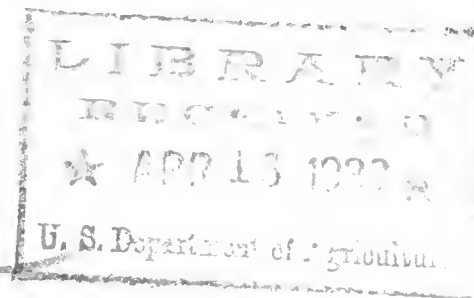 LIBRARY
RECEIVED
★ APR 13 ★
U. S. Department of Agriculture